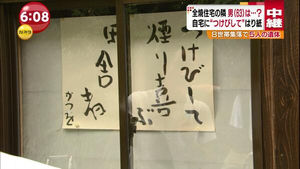 6:08
全焼住宅の隣 男(63)は…?
自宅に"つけびして"はり紙
中継
8世帯集落で5人の遺体
つけびして
煙り喜ぶ
田舎者
かつを